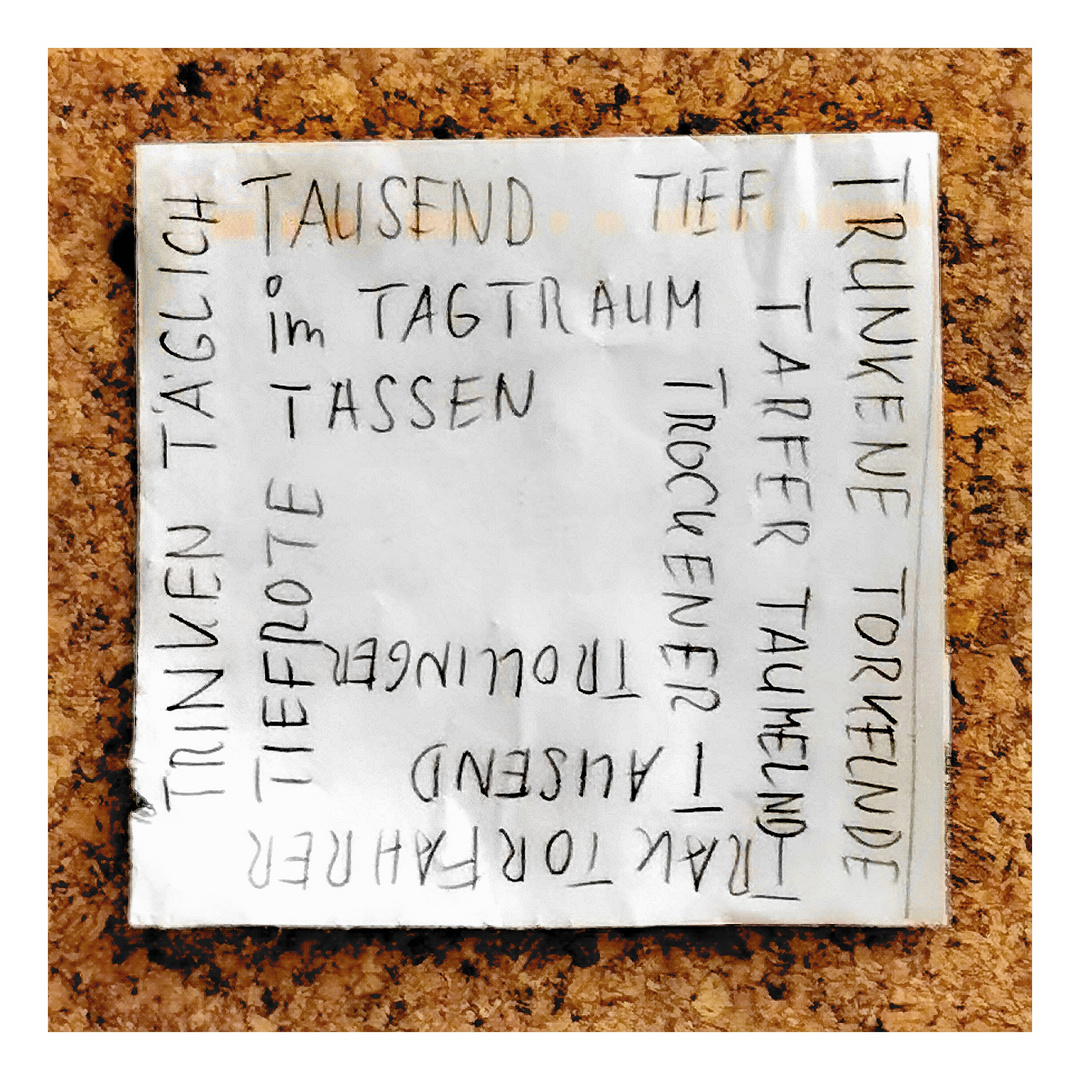 TAUSEND TIEF
TRUNKENE TORKELNDE
TRAKTORFAHRER
TRINKEN TÄGLICH
im TAGTRAUM
TARFER TAUMELND
TAUSEND
TIEFROTE
TASSEN
TROCKENER
TROLLINGER